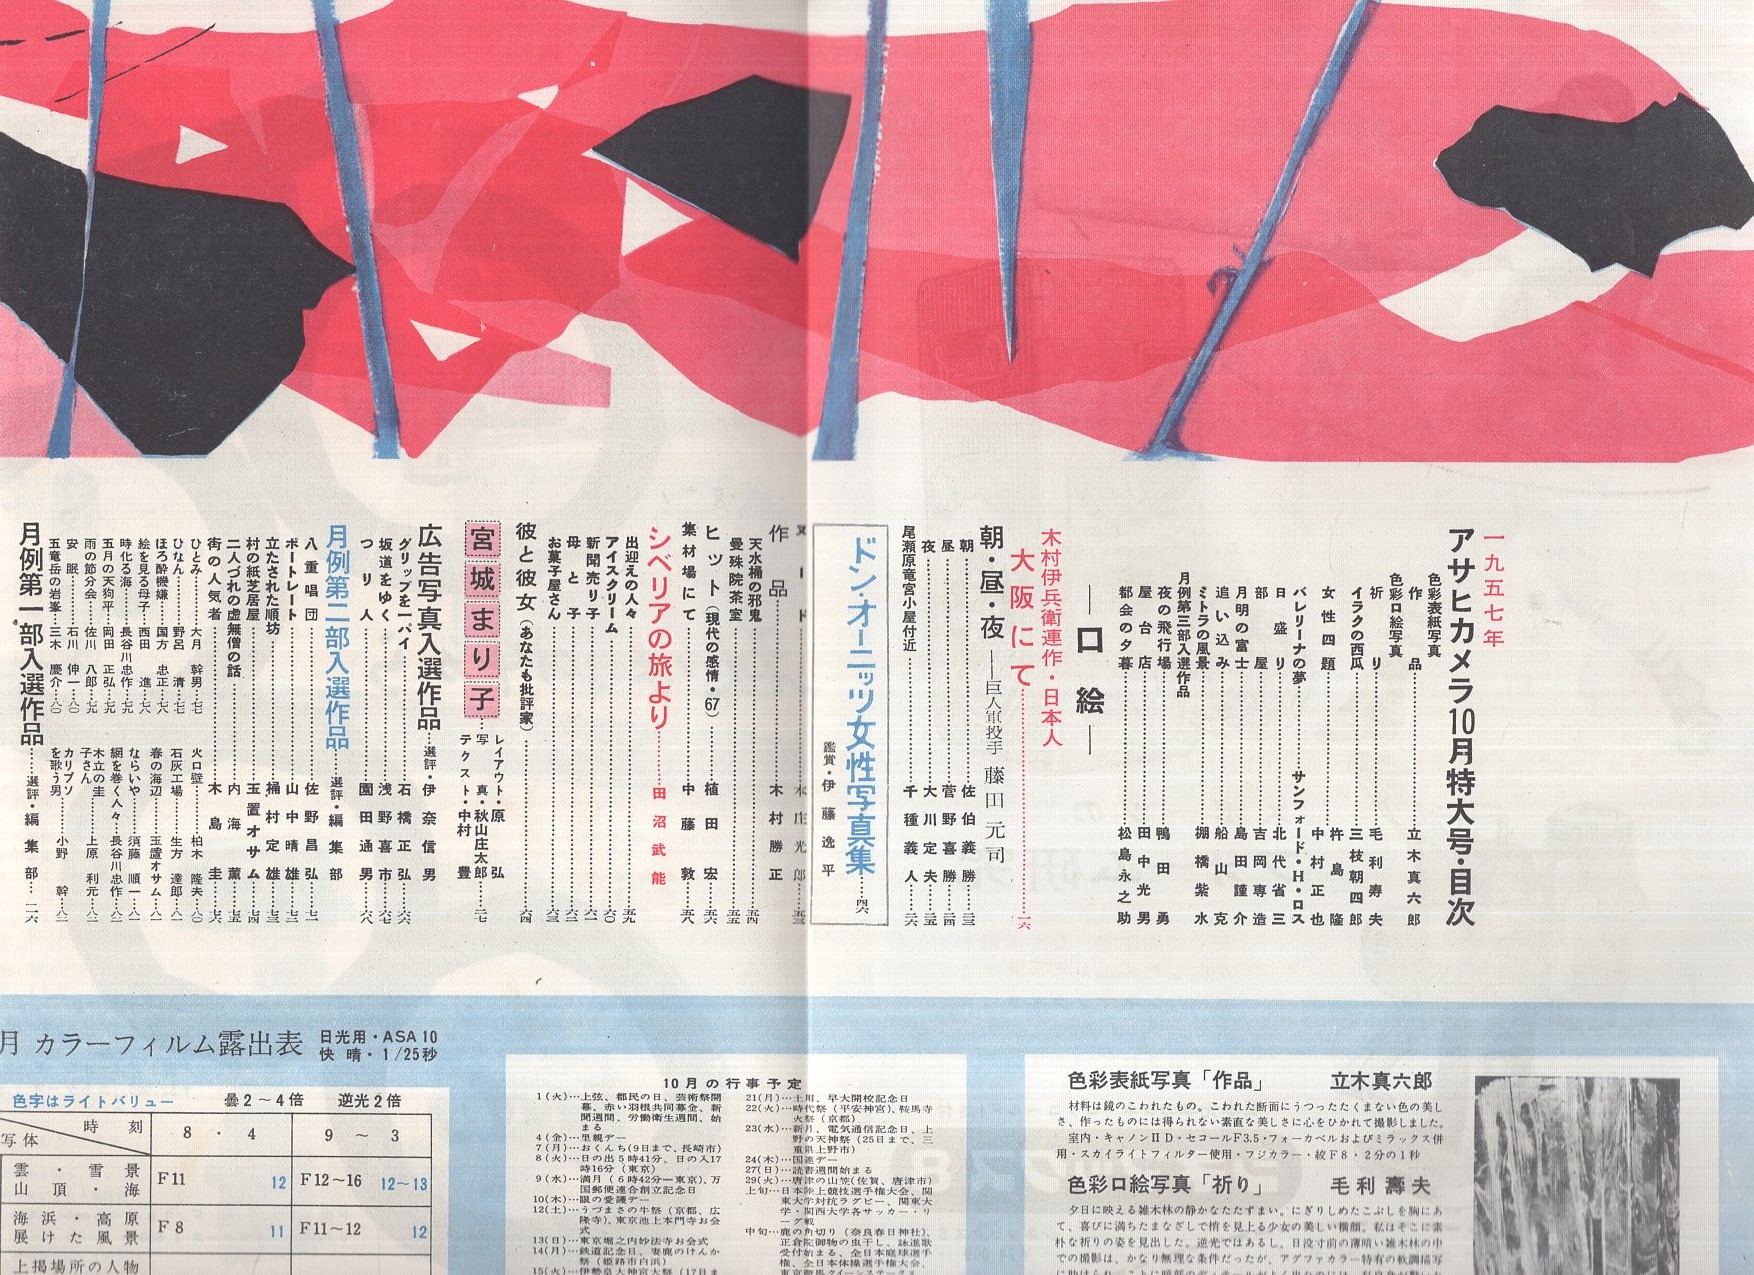 一九五七年
アサヒカメラ10月特大号・目次
色彩表紙写真
作品 立木真六郎
色彩口絵写真
祈り 毛利寿夫
イラクの西瓜 三枝朝四郎
女性四題 杵島隆
中村正也
バレリーナの夢 サンフォード・H・ロス
日盛り 北代省三
部屋 吉岡専造
月明の富士 島田謹介
追い込み 船山克
ミトラの風景 棚橋紫水
月例第三部入選作品
夜の飛行場 鴨田勇
屋台店 田中光男
都会の夕暮 松島永之助
―口絵―
木村伊兵衛連作・日本人
大阪にて 一六
朝・昼・夜―巨人軍投手 藤田元司
朝 佐伯義勝 二三
昼 菅野喜勝 二四
夜 大川定夫 二五
尾瀬原竜宮小屋付近 千種義人 二六
ドン・オーニッツ女性写真集 四六
鑑賞・伊藤逸平
ヌード 木庄光郎 五三
作品 木村勝正
天水桶の邪鬼 五四
曼殊院茶室 五五
ヒット(現代の感情・67) 植田宏 五六
集材場にて 中藤敦 五八
シベリアの旅より 田沼武能
出迎えの人々 五九
アイスクリーム 六〇
新聞売り子 六一
母と子 六二
お菓子屋さん 六三
彼と彼女(あなたも批評家) 六四
宮城まり子
レイアウト・原弘
写真・秋山庄太郎 二七
テクスト・中村豊
広告写真入選作品 選評・伊奈信男
グリップを一パイ 石橋正弘 六六
坂道をゆく 浅野喜市 六七
つり人 園田通男 六八
月例第二部入選作品 選評・編集部
八重唱団 佐野昌弘 七一
ポートレート 山中晴雄 七二
立たされた順坊 桶村定雄 七三
村の紙芝居屋 玉置オサム 七四
二人づれの虚無僧の話 内海薫 七五
街の人気者 木島圭 七六
ひとみ 大月幹男 七七
ひなん 野呂清 七七
ほろ酔機嫌 国方忠正 七六
絵を見る母子 西田進 七六
時化る海 長谷川忠作 七九
五月の天狗平 岡田正弘 七九
雨の節分会 佐川八郎 七九
安眠 石川伸一 八〇
五竜岳の岩峯 三木慶介 八〇
火口壁 柏木隆夫 八〇
石灰工場 生方達郎 八一
春の海辺 玉置オサム 八一
ならいや 須藤順一 八一
網を巻く人々 長谷川忠作 八二
木立の圭子さん 上原利元 八二
カリプソを歌う男 小野幹 八二
月例第一部入選作品 選評・編集部 二六
月 カラーフィルム露出表 日光用・ASA 10
快晴・1/25秒
色字はライトバリュー 曇2~4倍 逆光2倍
時刻 8・4 9~3
写体
雲・雪景
山頂・海 F11 12 F12~16 12~13
海浜・高原
展けた風景 F8 11 F11~12 12
上掲場所の人物
10月の行事予定
1(火)…上弦、都民の日、芸術祭開
幕、赤い羽根共同募金、新
聞週間、労働衛生週間、始
まる
4(金)…里親デー
7(月)…おくんち(9日まで、長崎市)
8(火)…日の出5時41分、日の入17
時16分(東京)
9(水)…満月(6時42分―東京)、万
国郵便連合創立記念日
10(木)…眼の愛護デー
12(土)…うづまさの牛祭(京都、広
隆寺)、東京池上本門寺お会
式
13(日)…東京堀之内妙法寺お会式
14(月)…鉄道記念日、妻鹿のけんか
祭(姫路市白浜)
15(火)…伊勢皇大神宮大祭(17日ま
21(月)…土用、早大開校記念日
22(火)…時代祭(平安神宮)、鞍馬寺
大祭(京都)
23(水)…新月、電気通信記念日、上
野の天神祭(25日まで、三
重県上野市)
24(木)…国連デー
27(日)…読書週間始まる
29(火)…唐津の山笠(佐賀、唐津市)
上旬…日本陸上競技選手権大会、関
東大学対抗ラグビー、関東大
学・関西大学各サッカー・リ
ーグ戦
中旬…鹿の角切り(奈良春日神社)、
正倉院御物の虫干し、詠進歌
受付始まる、全日本庭球選手
権、全日本体操選手権大会、
色彩表紙写真「作品」 立木真六郎
材料は鏡のこわれたもの。こわれた断面にうつったたくまない色の美し
さ、作ったものには得られない素直な美しさに心をひかれて撮影しました。
室内・キャノンⅡD・セコールF3.5・フォーカベルおよびミラックス併
用・スカイライトフィルター使用・フジカラー・絞F8・2分の1秒
色彩口絵写真「祈り」 毛利壽夫
夕日に映える雑木林の静かなたたずまい。にぎりしめたこぶしを胸にあ
て、喜びに満ちたまなざしで梢を見上る少女の美しい横顔。私はそこに素
朴な祈りの姿を見出した。逆光ではあるし、日没寸前の薄暗い雑木林の中
での撮影は、かなり無理な条件だったが、アグファカラー特有の軟調描写